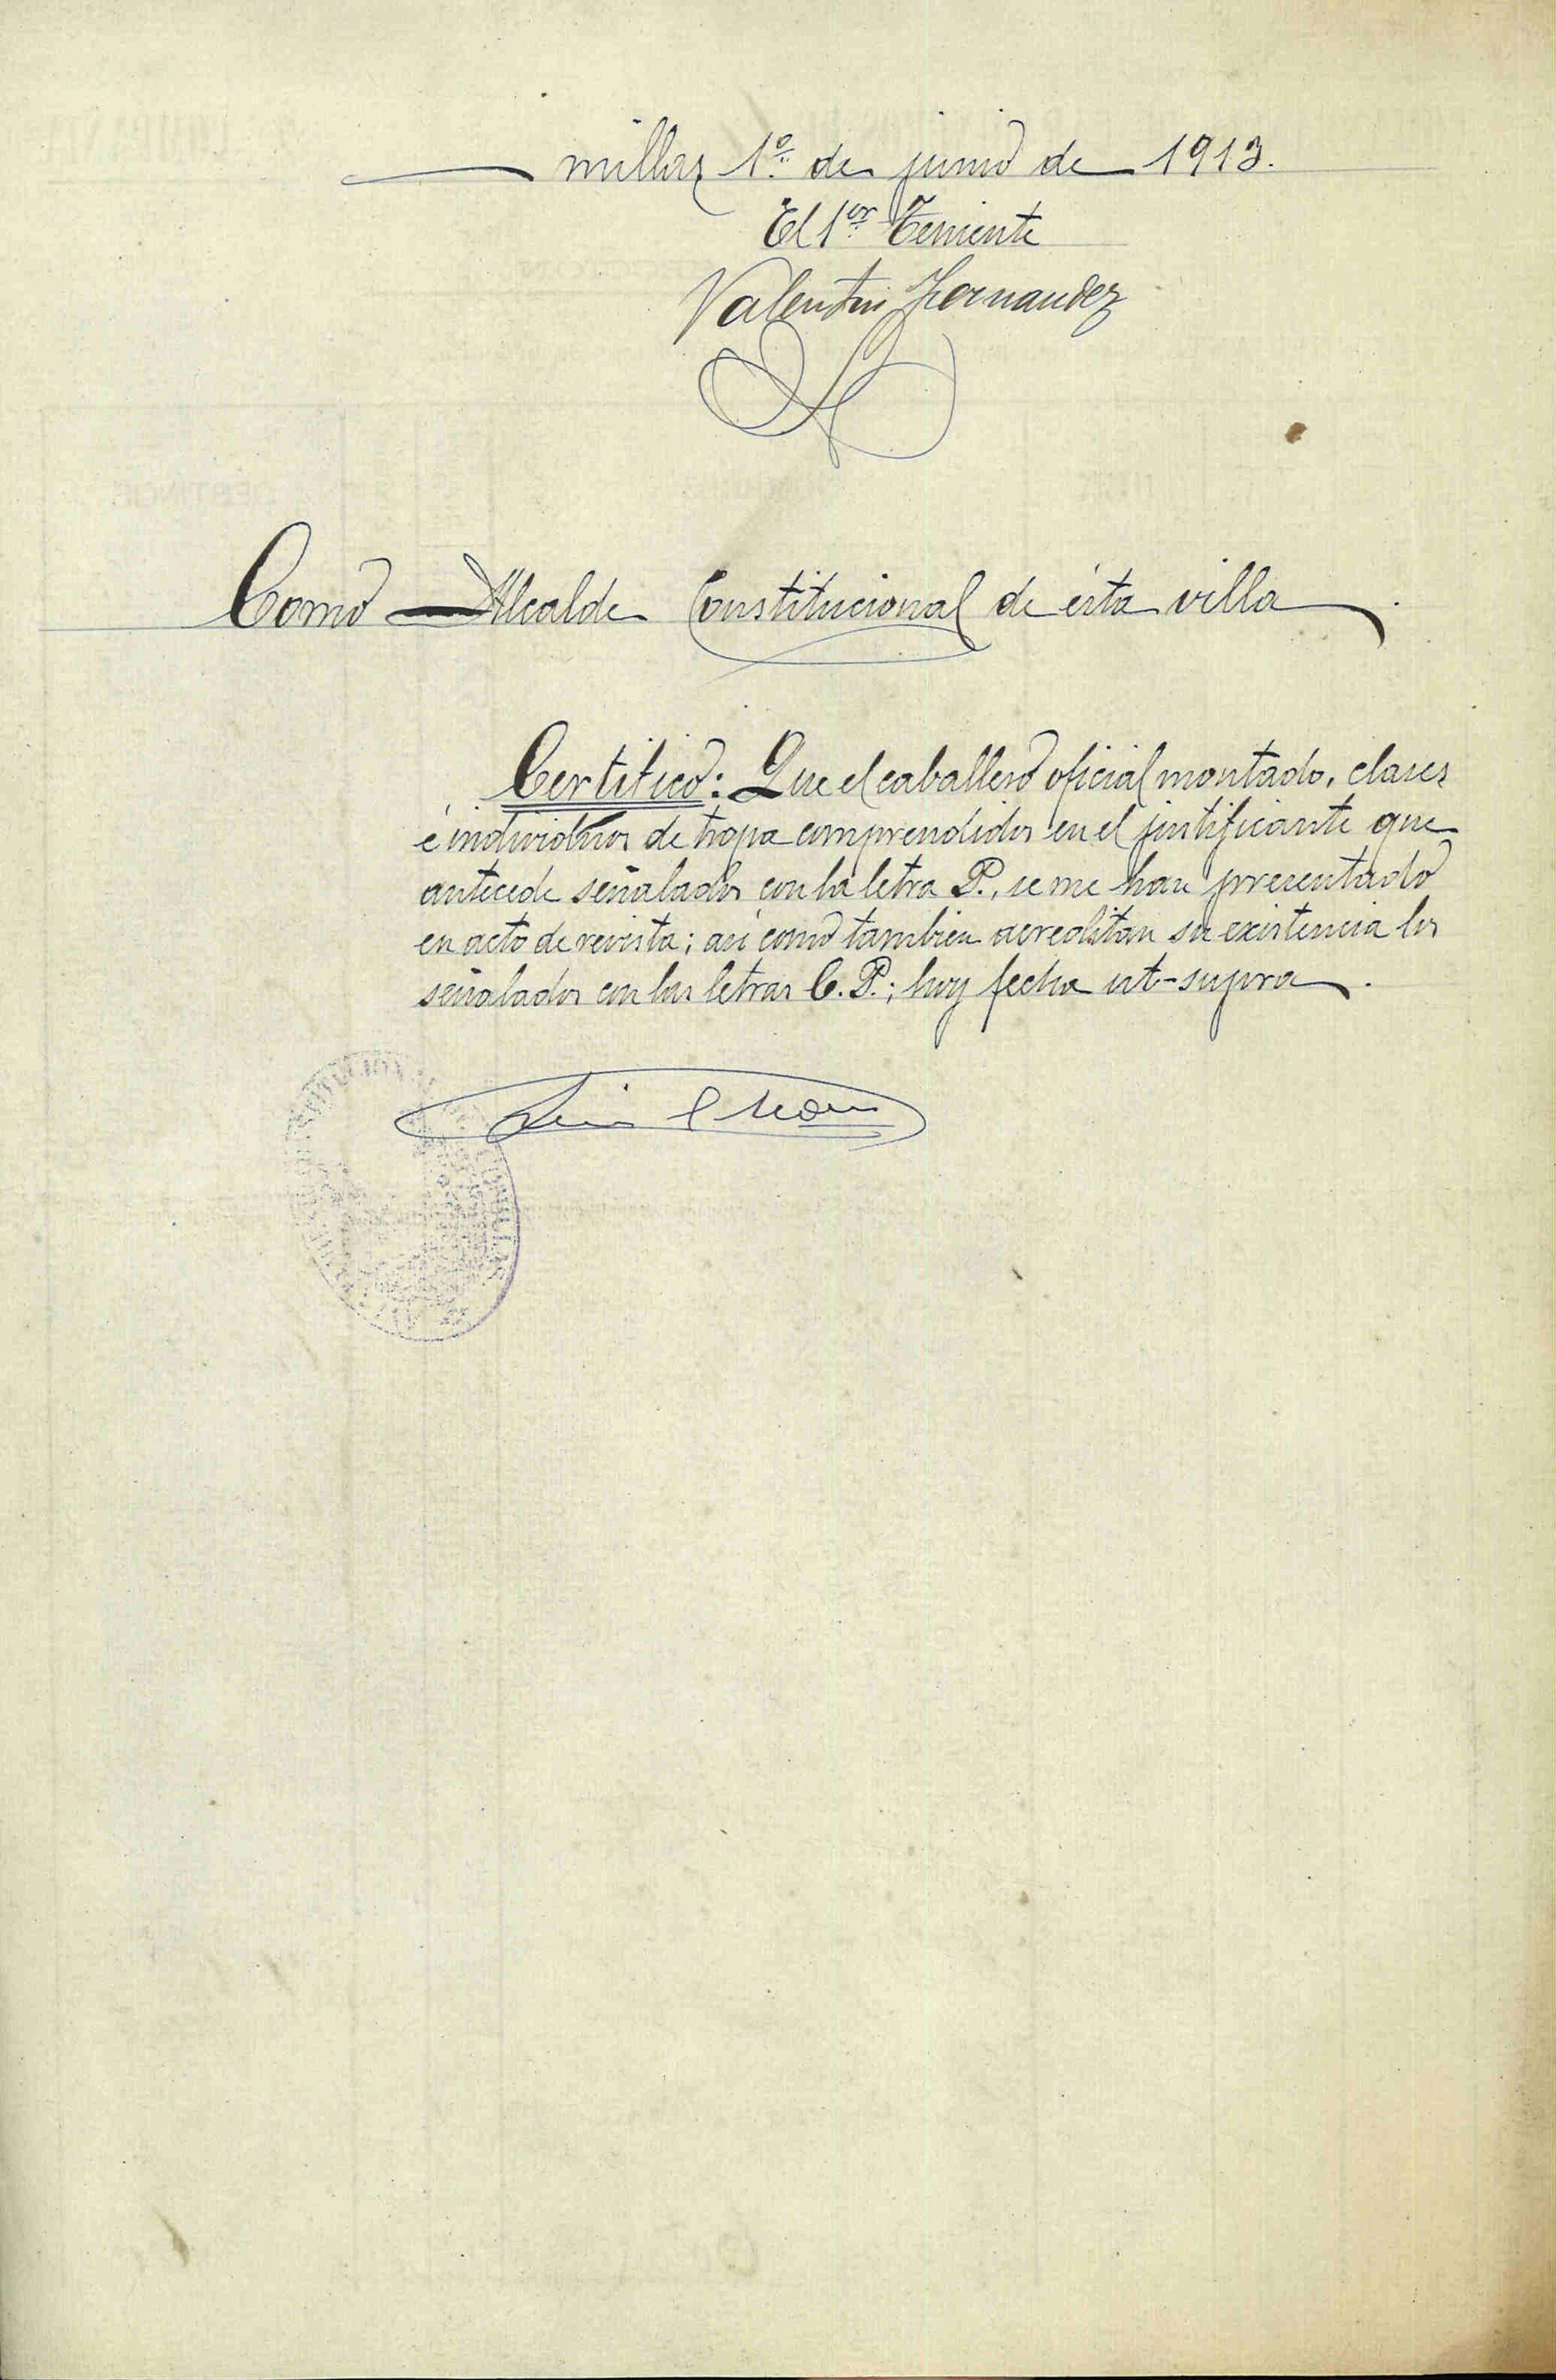 millas 1º de junio de 1913.
El 1er Teniente
Valentin Hernandez
Como Alcalde Constitucional de ésta villa.
Certifico: Que el caballero oficial montado, clases
é individuos de tropa comprendidos en el justificante que
antecede señalados con la letra P., se me han presentado
en acto de revista; asi como tambien acreditan su existencia los
señalados con las letras C. P.; hoy fecha ut-supra.